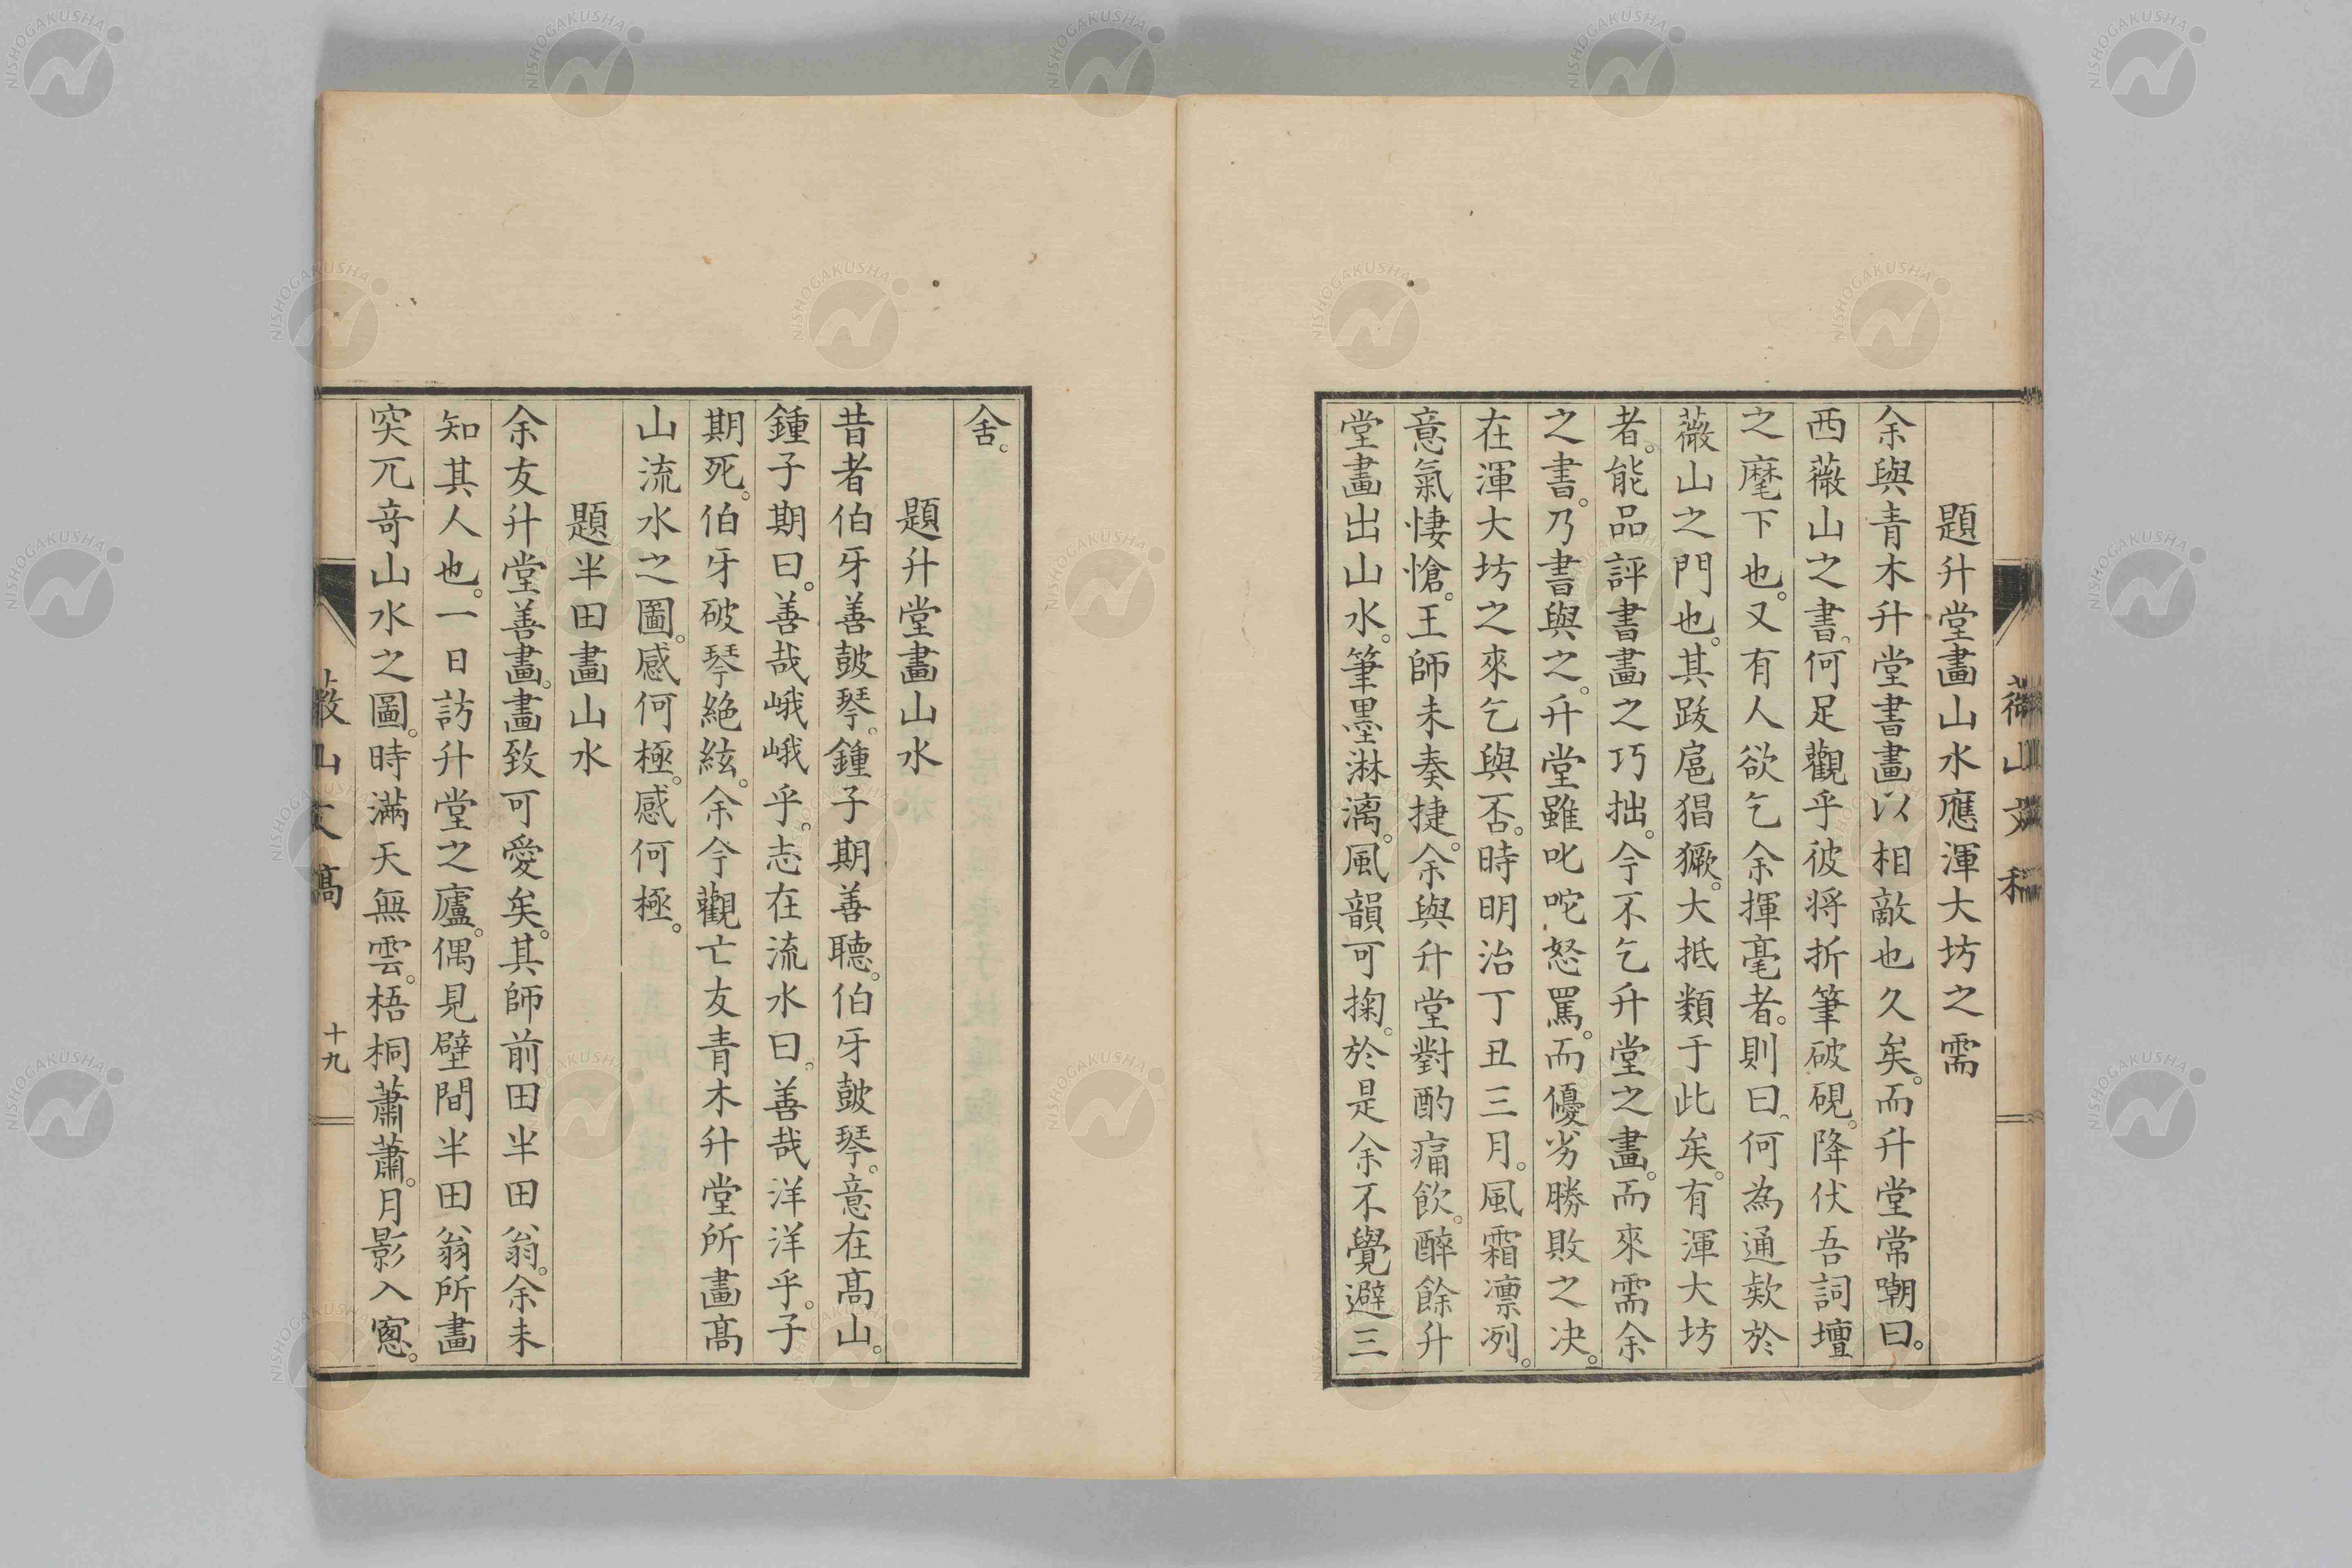 題升堂畫山水應渾大坊之需
余與青木升堂書畫以相敵也久矣。而升堂常嘲曰。
西薇山之書。何足觀乎彼将折筆破硯。降伏吾詞壇
之麾下也。又有人欲乞余揮毫者。則曰、何為通欵於
薇山之門也。其跋扈猖獗。大抵類于此矣。有渾大坊
者。能品評書畫之巧拙。今不乞升堂之畫。而來需余
之書。乃書與之。升堂雖叱咤怒罵。而優劣勝敗之决。
在渾大坊之來乞與否。時明治丁丑三月。風霜凛冽。
意氣悽愴。王師未奏捷。余與升堂對酌痛飲。醉餘升
堂畫出山水。筆墨淋漓。風韻可掬。於是余不覺避三
舍。
題升堂畫山水
昔者伯牙善皷琴。鍾子期善聽。伯牙皷琴。意在髙山。
鍾子期曰。善哉峨峨乎。志在流水曰。善哉洋洋乎。子
期死。伯牙破琴絶絃。余今觀亡友青木升堂所畫髙
山流水之圖。感何極。感何極。
題半田畫山水
余友升堂善畫。畫致可愛矣。其師前田半田翁。余未
知其人也。一日訪升堂之廬。偶見壁間半田翁所畫
突兀竒山水之圖。時滿天無雲。梧桐蕭蕭。月影入窻。
薇山文稿
十九
NISHOGAKUSHA